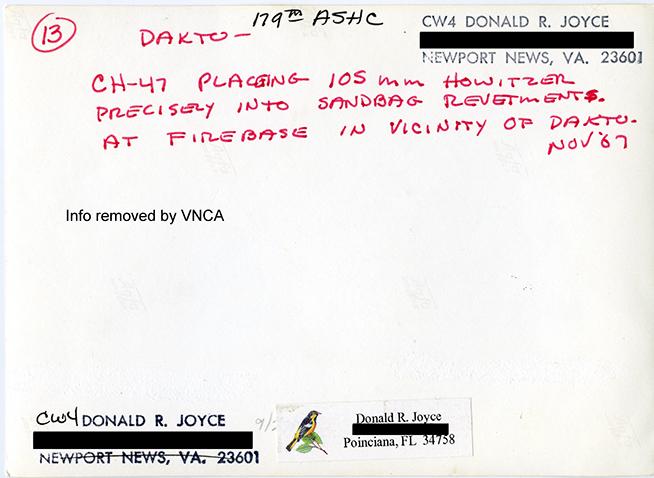 13
179TH ASHC
DAKTO -
CW4 DONALD R. JOYCE
NEWPORT NEWS, VA. 23601
CH-47 PLACING 105 mm HOWITZER
PRECISELY INTO SANDBAG REVETMENTS.
AT FIREBASE IN VICINITY OF DAKTO.
NOV '67
Info removed by VNCA
CW4 DONALD R. JOYCE
NEWPORT NEWS, VA. 23601
9/
Donald R. Joyce
Poinciana, FL 34758